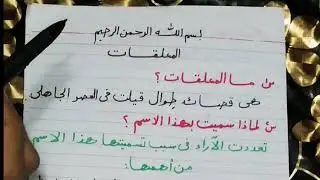 بسم الله الرحمن الرحيم
المعلقات
س/ ما المعلقات ؟
هى قصائد طوال قيلت فى العصر الجاهلى
س/ لماذا سميت بهذا الاسم ؟
تعددت الآراء فى سبب تسميتها بهذا الاسم
من أهمها: